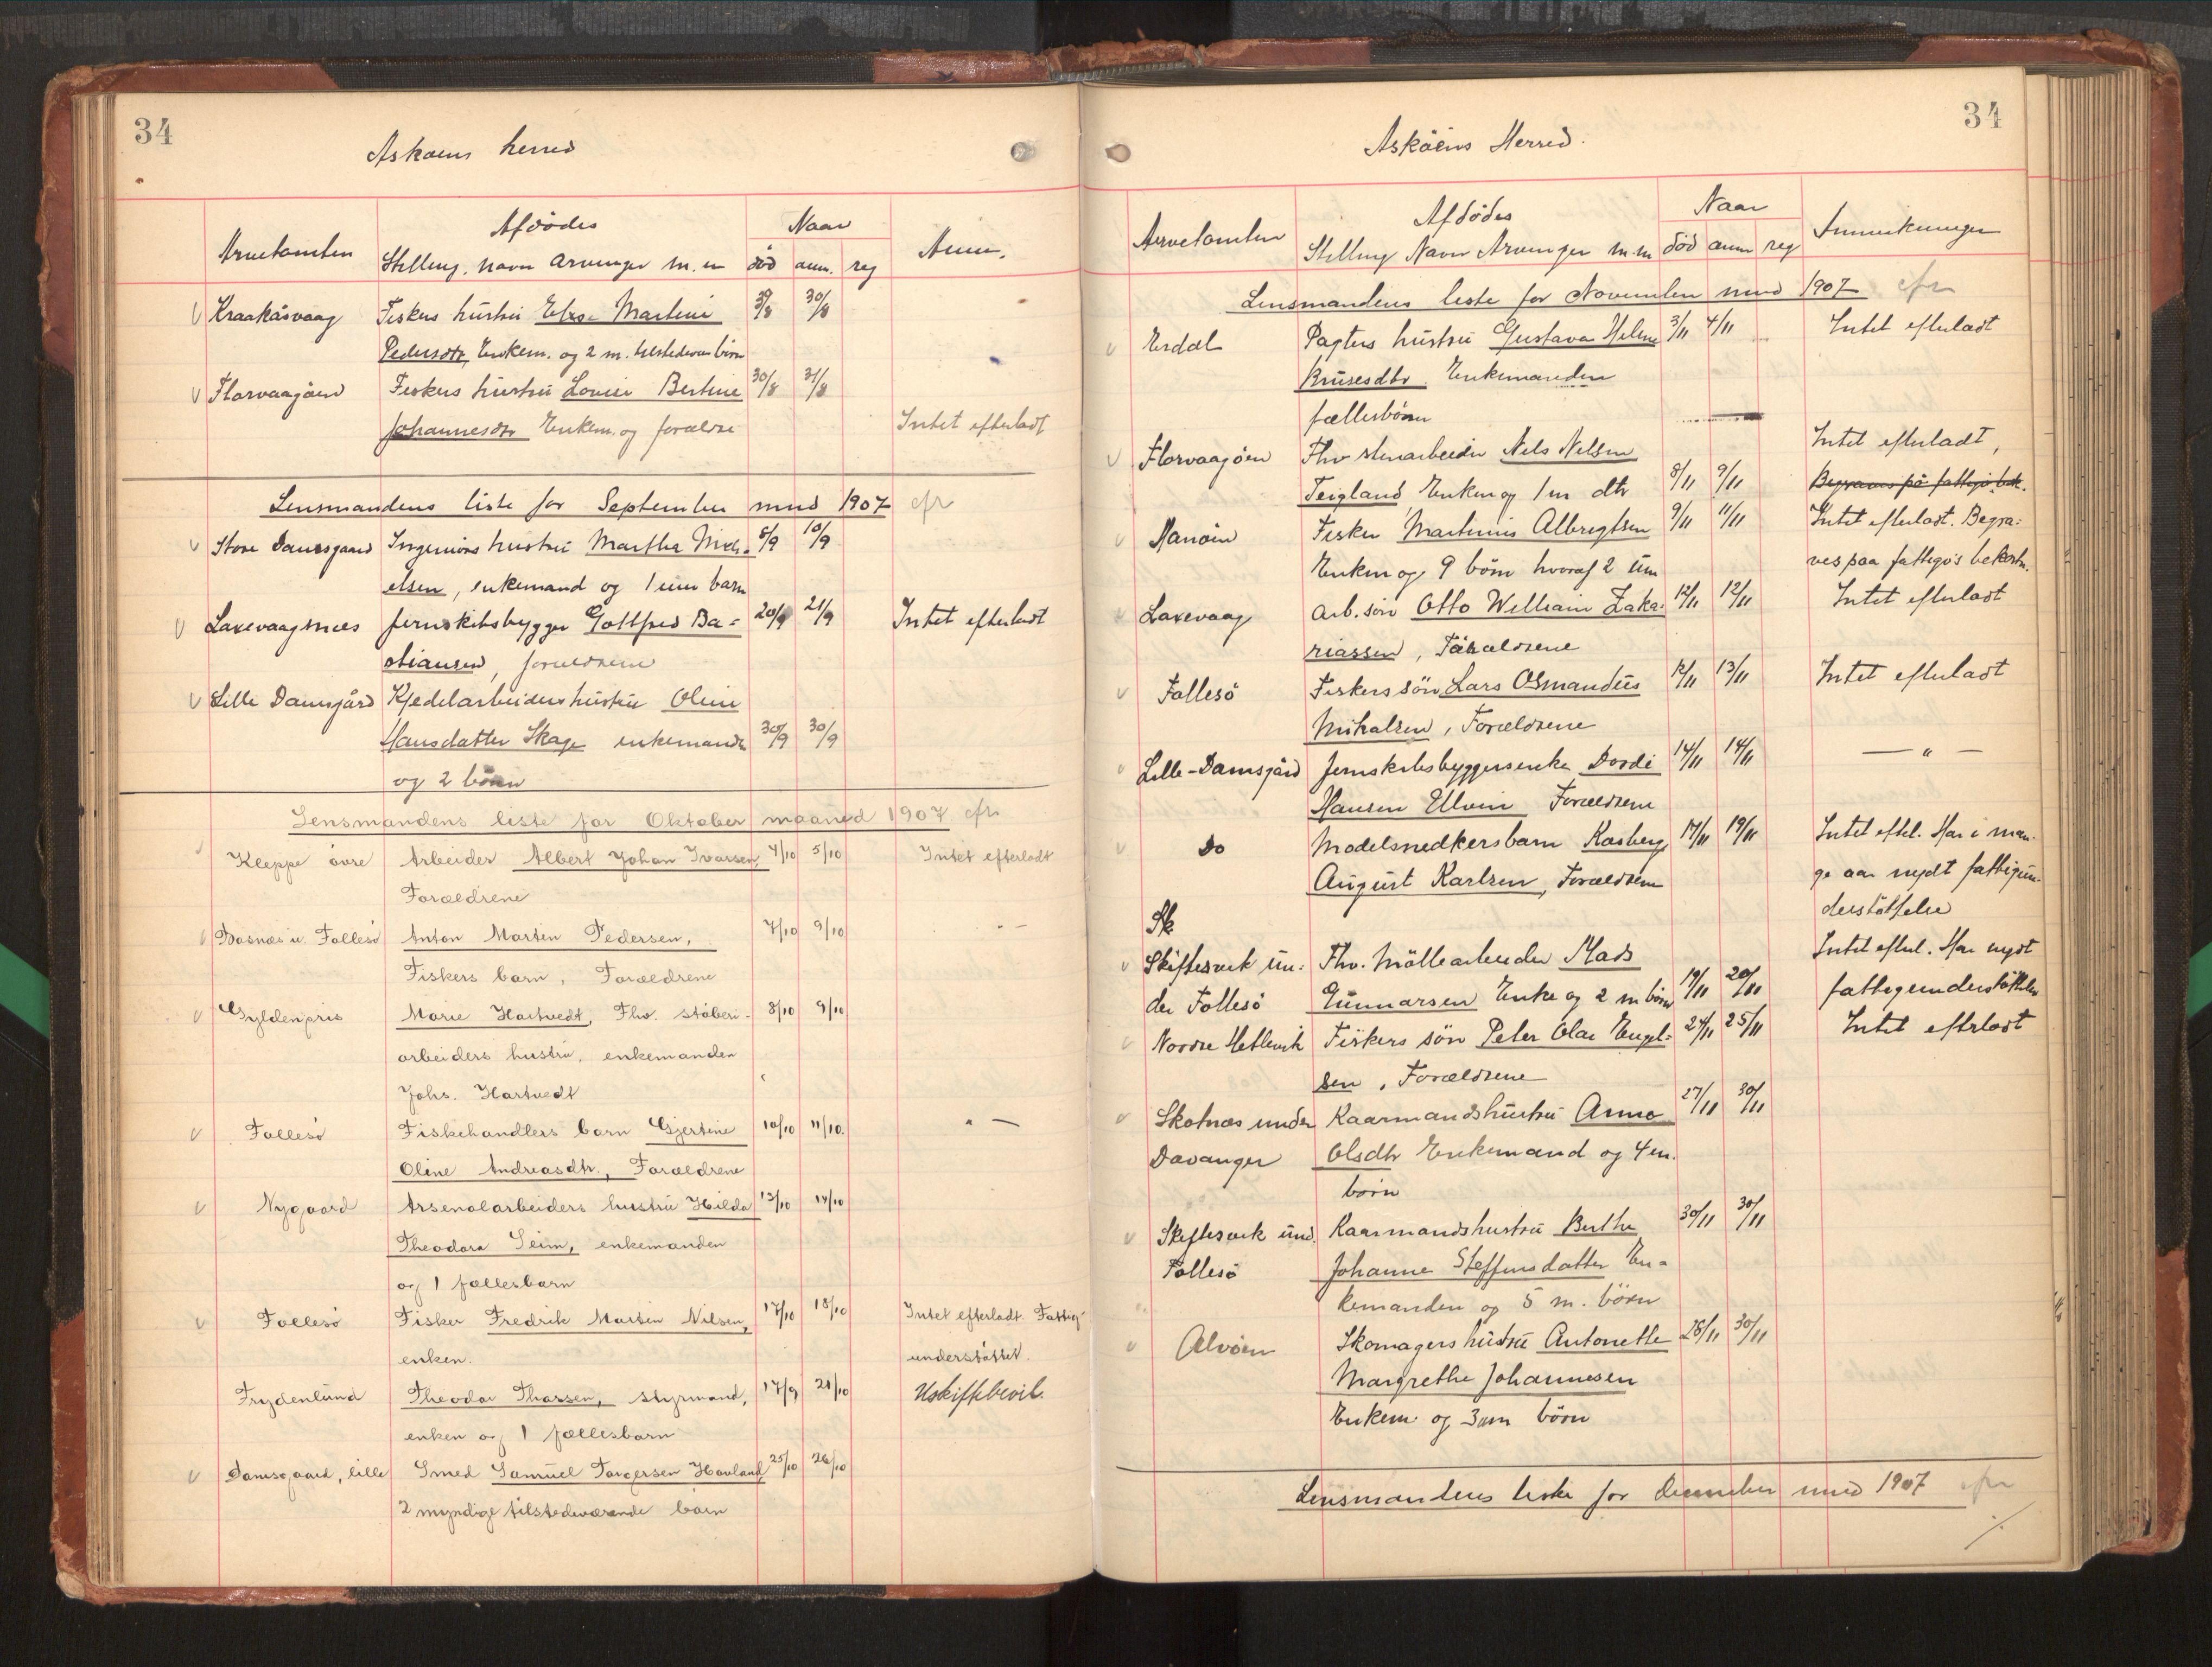 34
Askøens herred
Arvetomten
Afdødes
Stilling, navn Arvinger m. m
Naar
død anm. reg
Anm.
Kraakåsvaag Fiskers hustru Elise Martini 29/8 30/8
Pedersdtr, Enkem. og 2 m. tilstedevær børn
Florvaagøen Fiskers hustru Lovise Bertine 30/8 31/8
Johannesdtr Enkem. og forældre Intet efterladt
Lensmandens liste for September mnd 1907 efr
Store Damsgaard Ingeniørs hustru Martha Mich= 8/9 10/9
elsen, enkemand og 1 um barn
Laxevaagsnæs jernskibsbygger Gottfred Ba= 20/9 21/9 Intet efterladt
stiansen, forældrene
Lille Damsgård Kjedelarbeiders hustru Oline
Hansdatter Skage enkemanden 30/9 30/9
og 2 børn
Lensmandens liste for Oktober maaned 1907 efr
Kleppe øvre Arbeider Albert Johan Ivarsen, 4/10 5/10 Intet efterladt
Forældrene
Bosnæs u. Follesø Anton Martin Pedersen, 7/10 9/10 " -
Fiskers barn, Forældrene
Gyldenpris Marie Hartvedt, Fhv. støberi- 8/10 9/10
arbeiders hustru, enkemanden
Johs. Hartvedt
Follesø Fiskehandlers barn Gjertine 10/10 11/10. " —
Oline Andreasdtr., Forældrene
Nygaard Arsenalarbeiders hustru Hilda 13/10 14/10
Theodora Seim, enkemanden
og 1 fællesbarn
Follesø Fisker Fredrik Martin Nilsen, 17/10 18/10 Intet efterladt Fattig
enken. understøttet.
Frydenlund Theodor Thorsen, styrmand, 17/9 21/10 Uskiftebevil.
enken og 1 fællesbarn
Damsgaard, lille Smed Samuel Torgersen Hovland 25/10 26/10
2 myndige tilstedeværende børn
34
Askøens Herred.
Arvetomten
Afdødes
Stilling Navn Arvinger m.m
Naar
død anm reg
Anmerkninger
Lensmandens liste for November mnd 1907 efr
Erdal Pagters hustru Gustava Helene 3/11 4/11 Intet efterladt
Brusesdtr. Enkemanden
fællesbørn
Florvaagøen Fhv stenarbeider Nels Nelsen Intet efterladt,
Teigland, Enken og 1 m dtr 8/11 9/11 Begraves på fattigv. bek.
Hanøen Fisker Martinus Albregtsen 9/11 11/11 Intet efterladt. Begra=
Enken og 9 børn hvoraf 2 um ves paa fattigv's bekostn.
Laxevaag Arb. søn Otto William Zaka= 12/11 12/11 Intet efterladt
riassen, Forældrene
Follesø Fiskers søn Lars Osmandus 12/11 13/11 Intet efterladt
Mikalsen, Forældrene
Lille-Damsgård Jernskibsbyggersenke Dordi 14/11 14/11 — " —
Hansen Ulven Forældrene
Do Modelsnedkersbarn Kasberg 17/11 19/11 Intet eftel. Har i man-
August Karlsen, Forældrene ge aar nydt fattigun-
Sk derstøttelse
Skiftesvik un= Fhv. Møllearbeider Mads Intet efterl. Har nydt
der Follesø Gunnarsen Enke og 2 m børn 19/11 20/11 fattigunderstøttelse
Nordre Hetlevik Fiskers søn Peter Olai Engel= 24/11 25/11 Intet efterladt
sen, Forældrene
Skotnæs under Kaarmandshustru Anna 27/11 30/11
Davanger Olsdtr Enkemand og 4 m.
børn
Skiftesvik und. Kaarmandshustru Berthe 30/11 30/11
Follesø Johanne Steffensdatter En=
kemanden og 5 m. børn
Alvøen Skomagers hustru Antonette 28/11 30/11
Margrethe Johannesen
Enkem. og 3 um børn
Lensmandens liste for December mnd 1907 efr